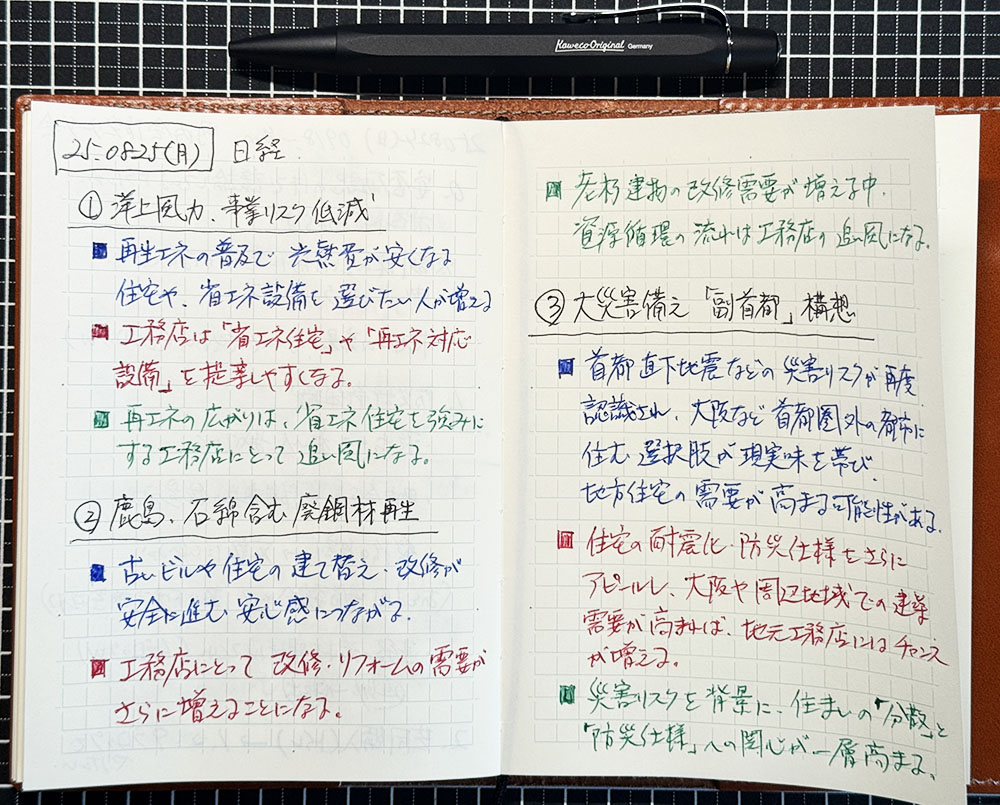 Kaweco Original Germany
25.0825(月) 日経
① 洋上風力、事業リスク低減
再生エネの普及で光熱費が安くなる
住宅や、省エネ設備を選びたい人が増える
工務店は「省エネ住宅」や「再エネ対応
設備」を提案しやすくなる。
再エネの広がりは、省エネ住宅を強みに
する工務店にとって追い風になる。
② 鹿島、石綿含む廃鋼材再生
古いビルや住宅の建て替え・改修が
安全に進む安心感につながる。
工務店にとって改修・リフォームの需要が
さらに増えることになる。
老朽建物の改修需要が増える中、
資源循環の流れは工務店の追い風になる。
③ 大災害備え「副首都」構想
首都直下地震などの災害リスクが再度
認識され、大阪など首都圏外の都市に
住む選択肢が現実味を帯び、
地方住宅の需要が高まる可能性がある。
住宅の耐震化・防災仕様をさらに
アピールし、大阪や周辺地域での建築
需要が高まれば、地元工務店にはチャンス
が増える。
災害リスクを背景に、住まいの「分散」と
「防災仕様」への関心が一層高まる。